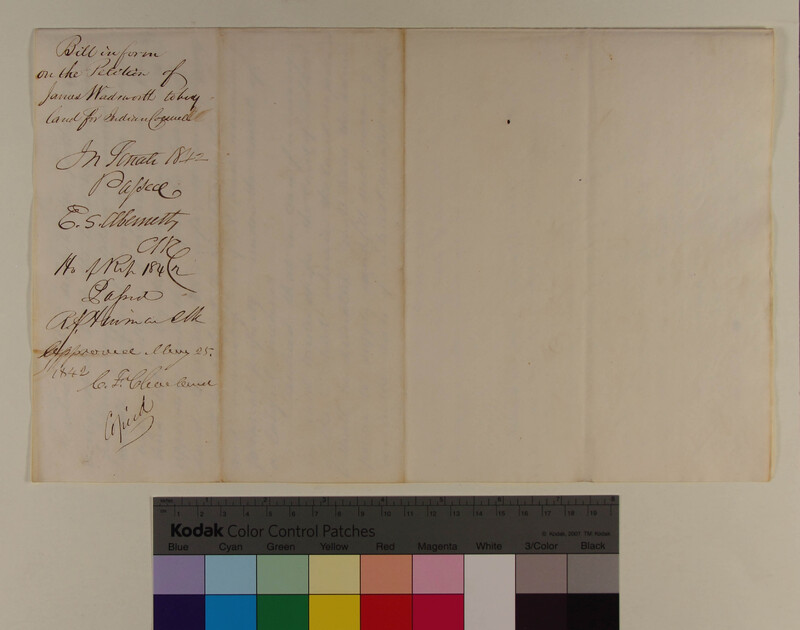 Bill in form
on the Petition of
James Wadsworth to buy
land for Indian Council
In Senate 1842
Passed
E. S. Abernethy
Clk
Ho of Rep. 1842
Passed
R. R. Hinman Clk
Approved May 25.
1842
C. F. Cleveland
Copied
Kodak Color Control Patches
© Kodak, 2007 TM: Kodak
Blue Cyan Green Yellow Red Magenta White 3/Color Black